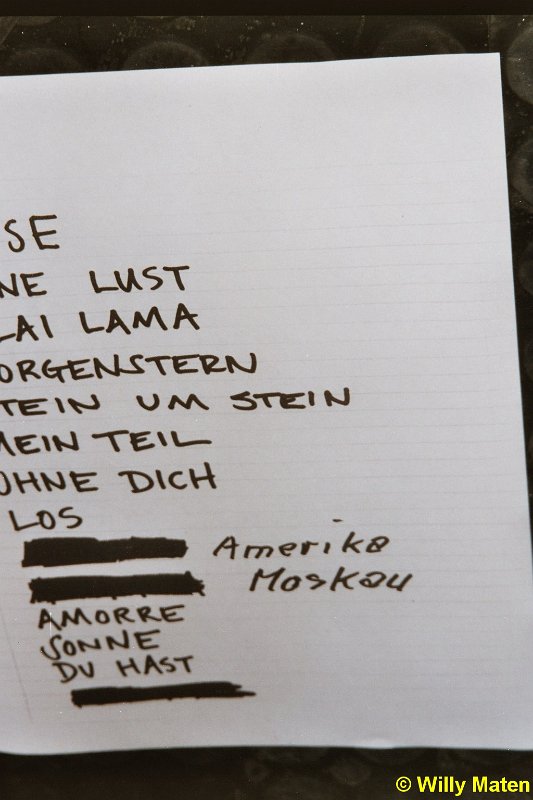 SE
NE LUST
LAI LAMA
ORGENSTERN
TEIN UM STEIN
MEIN TEIL
OHNE DICH
LOS
Amerika
Moskau
AMORRE
SONNE
DU HAST
© Willy Maten